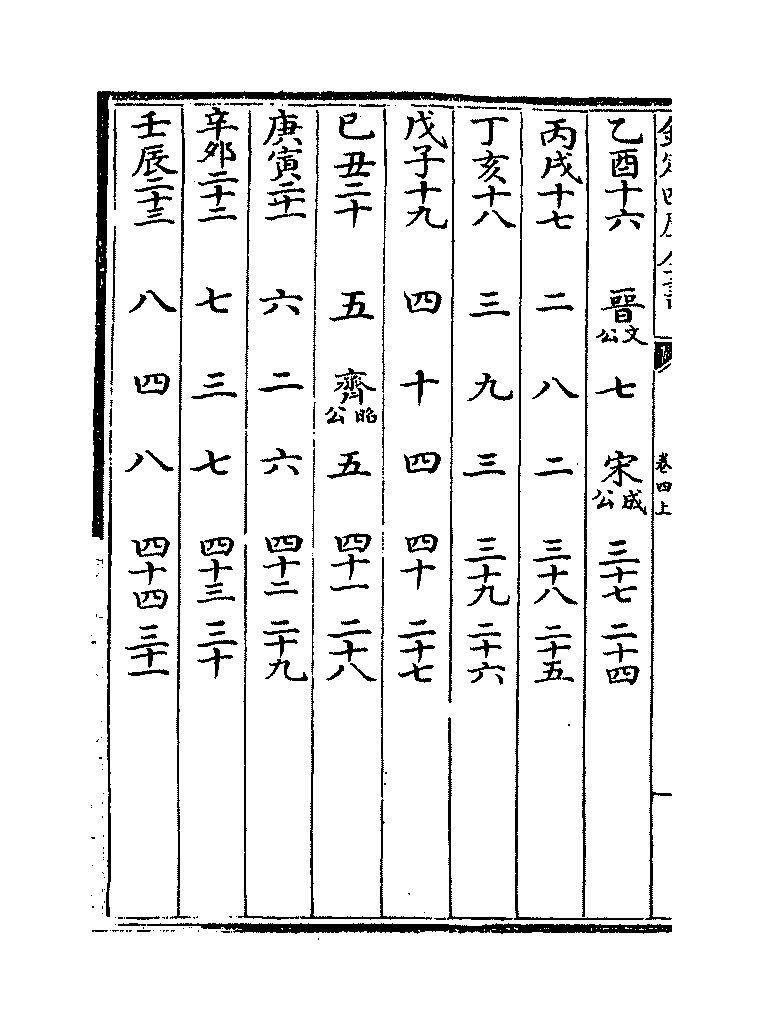 欽定四庫全書 卷四上
乙酉十六 晉文公 七 宋成公 三十七 二十四
丙戌十七 二 八 二 三十八 二十五
丁亥十八 三 九 三 三十九 二十六
戊子十九 四 十 四 四十 二十七
己丑二十 五 齊昭公 五 四十一 二十八
庚寅二十一 六 二 六 四十二 二十九
辛卯二十二 七 三 七 四十三 三十
壬辰二十三 八 四 八 四十四 三十一